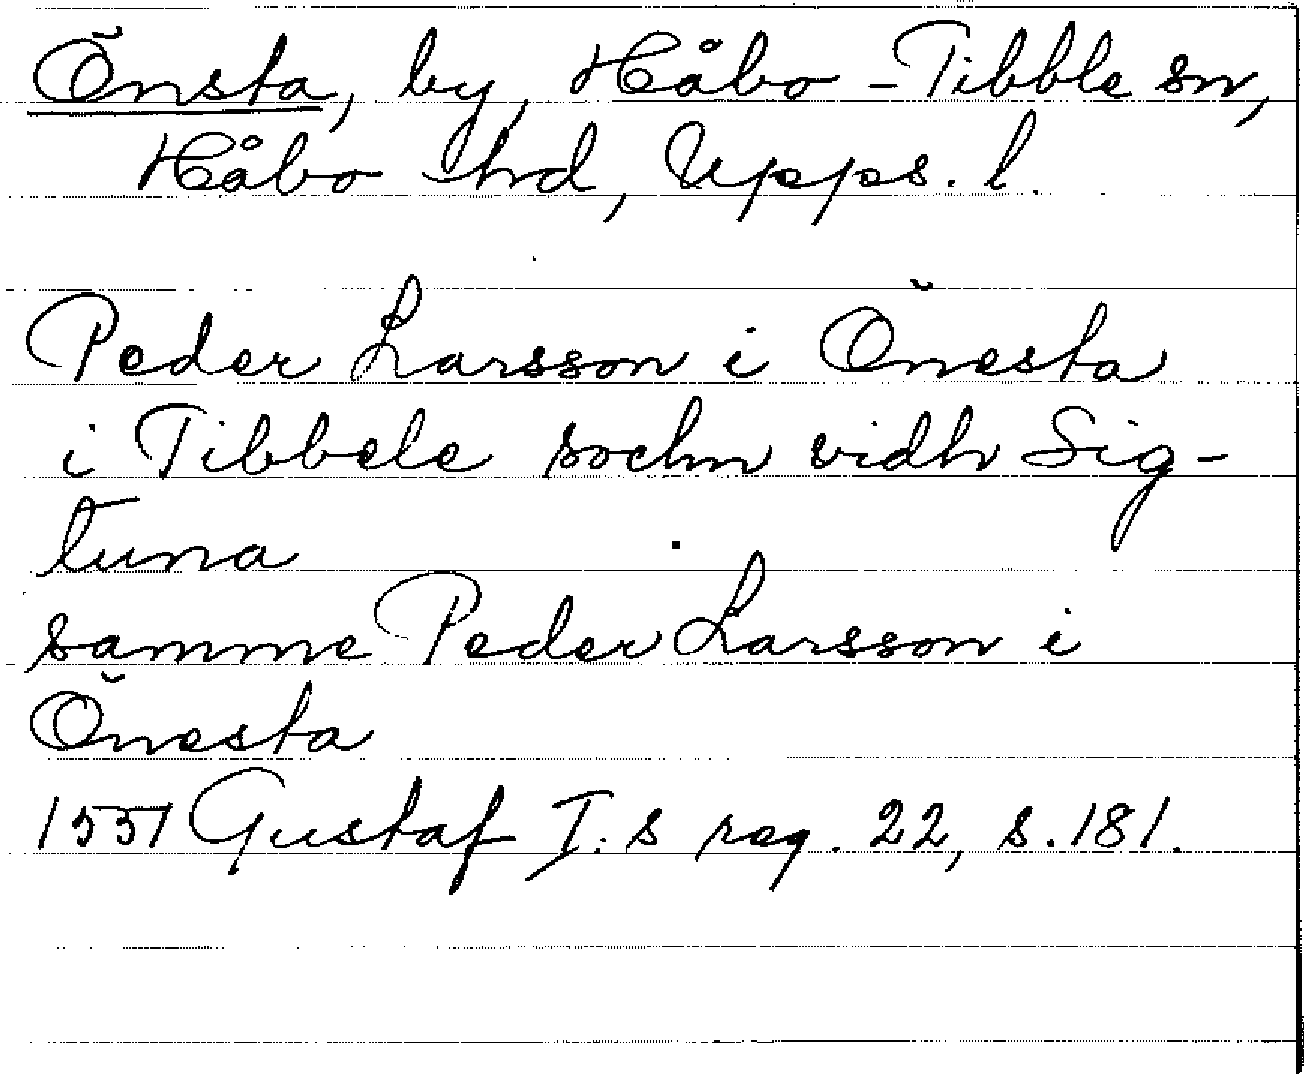 Önsta, by, Håbo-Tibble sn,
Håbo hd, Upps. l.
Peder Larsson i Önesta
i Tibbele sochn vidh Sig-
tuna
samme Peder Larsson i
Önesta
1551 Gustaf I:s reg. 22, s. 181.